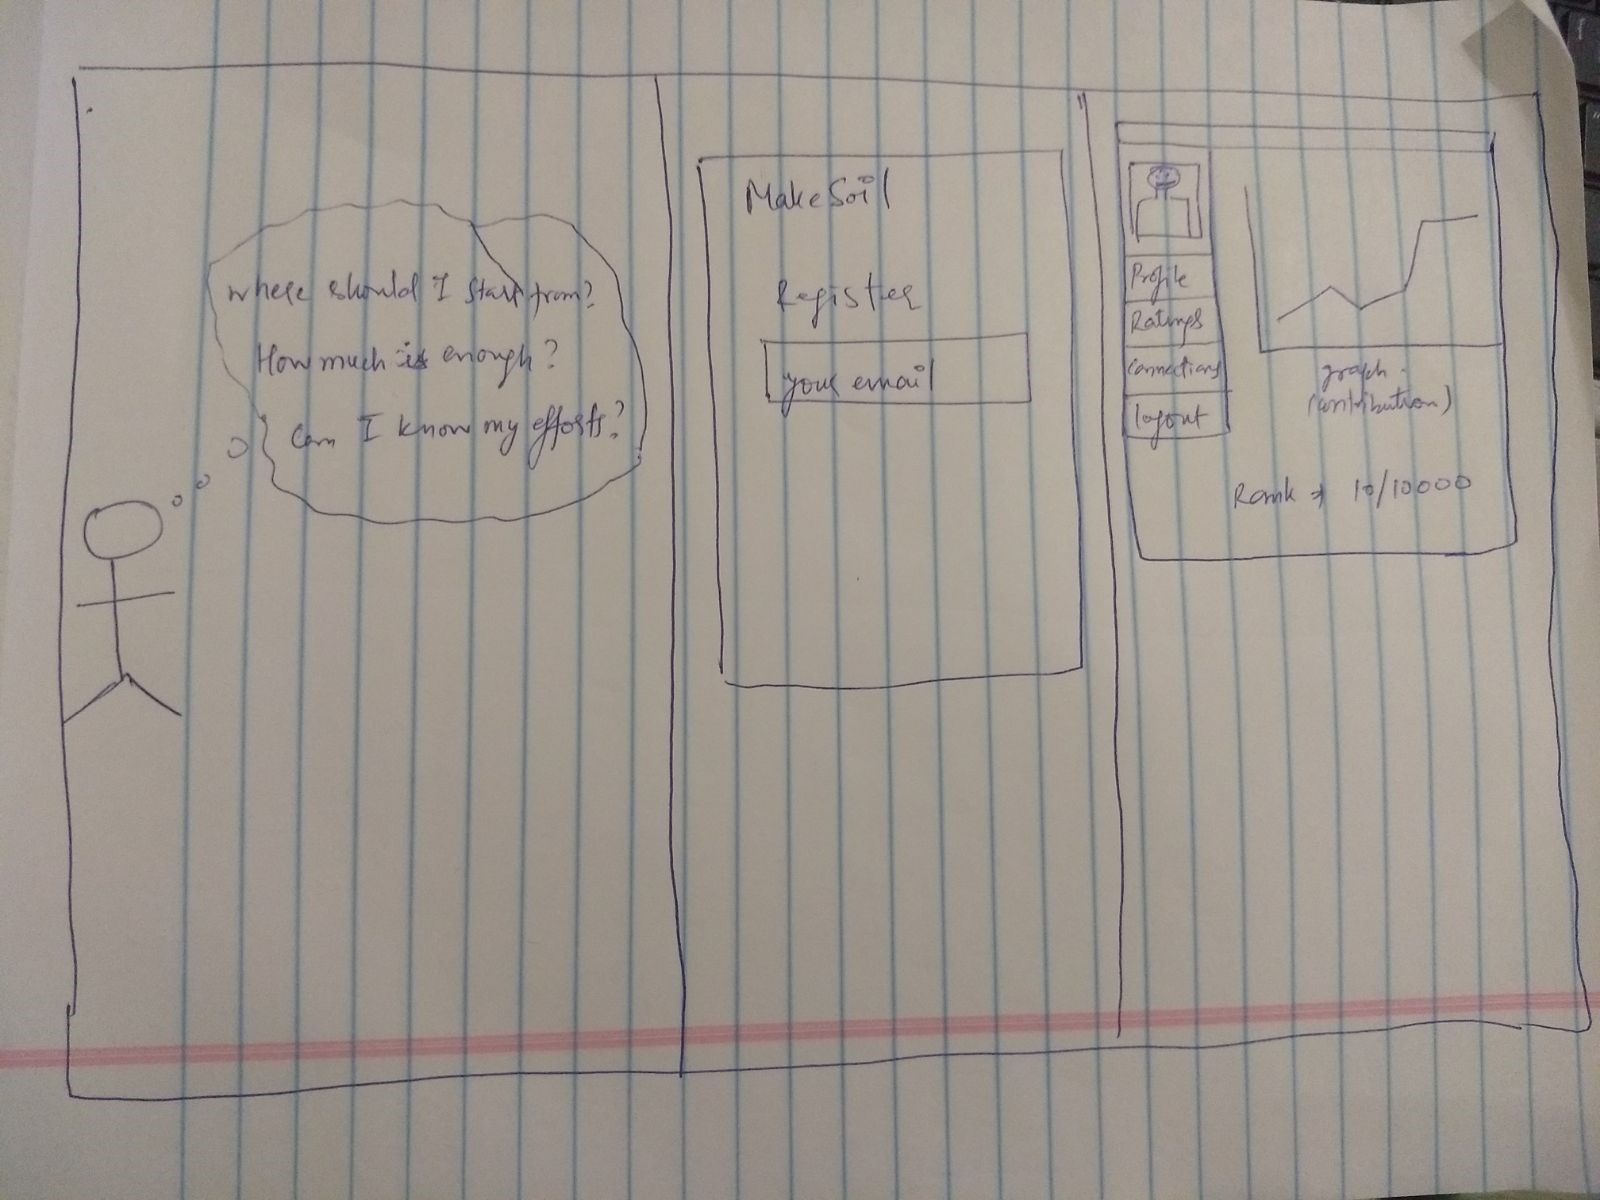 where should I start from?
How much is enough?
Can I know my efforts?
MakeSoil
Register
your email
Profile
Ratings
Connections
logout
graph
(contribution)
Rank → 10/10000